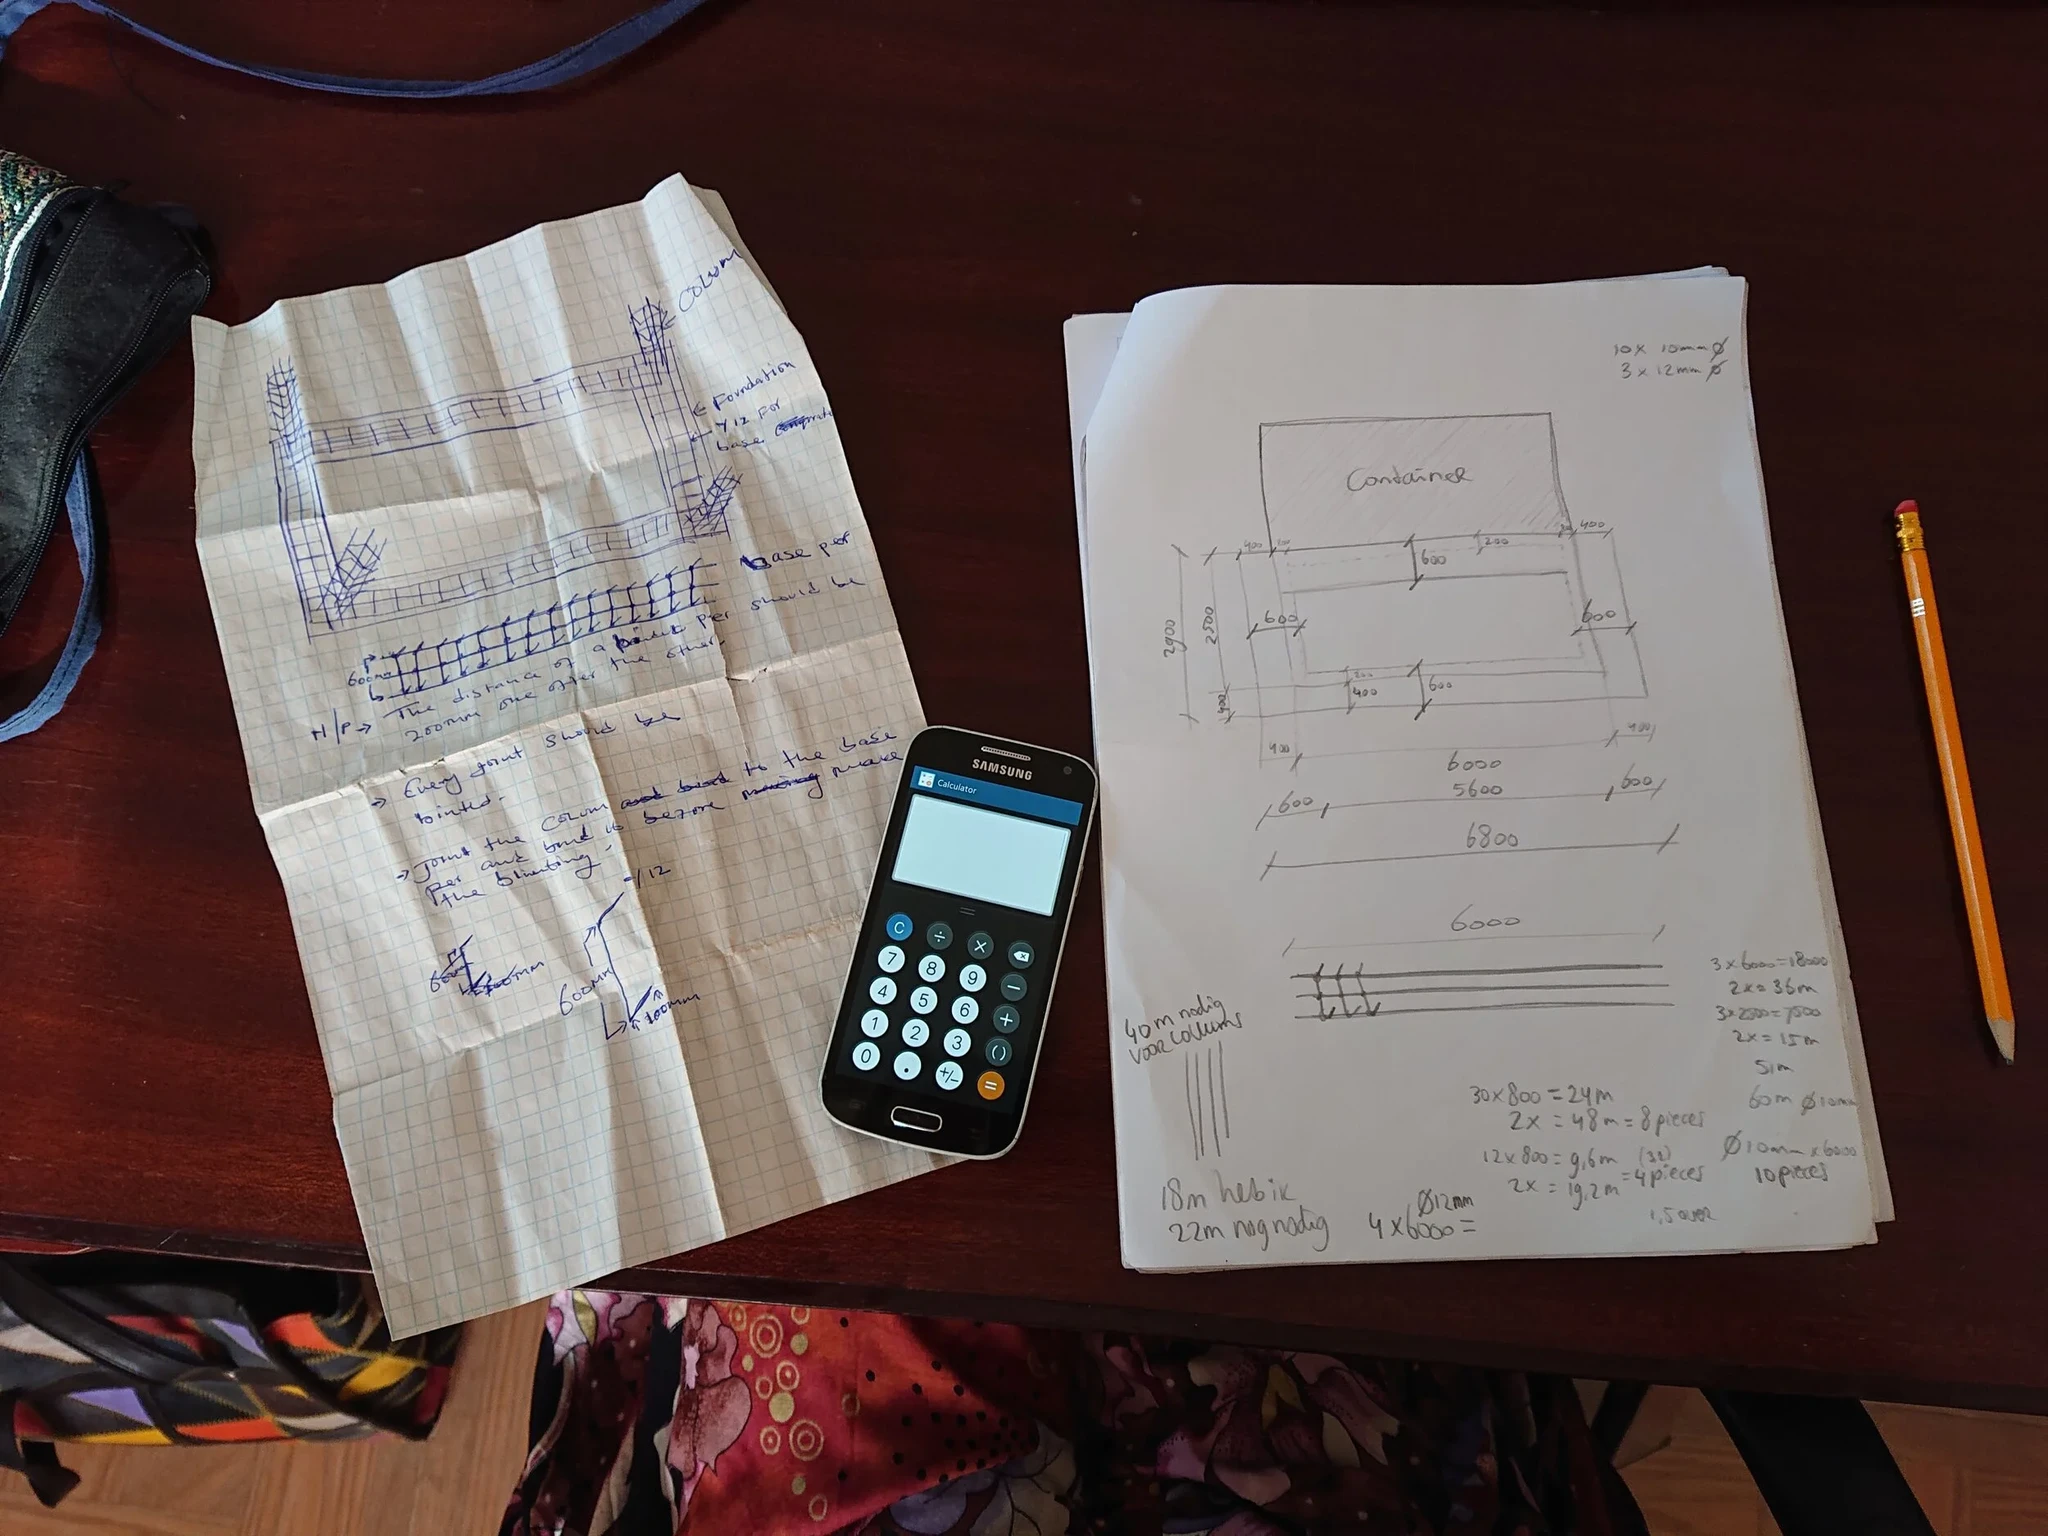 COLUMN
← Foundation
← Y12 For
base
base per
600mm
N/P → The distance of a per should be
200mm one after the other.
→ Every joint should be
binted.
→ Joint the column to the base
per and bind it before make
the blinting.
Y12
600mm
600mm
100mm
SAMSUNG
Calculator
C ÷ ×
7 8 9 −
4 5 6 +
1 2 3 ()
0 . +/− =
10x 10mm Ø
3 x 12mm Ø
Container
400 200 200 400
600
2900
2500
600 600
200
400 600
400
400 6000 400
600 5600 600
6800
6000
3x6000=18000
2x=36m
3x2500=7500
2x=15m
51m
60m Ø10mm
Ø10mm x 6000
10 pieces
40m nodig
voor collums
30x800=24m
2x = 48m = 8 pieces
12x800=9,6m (32)
2x = 19,2m = 4 pieces
1,5 over
18m heb ik
22m nog nodig
Ø12mm
4x6000=
HB